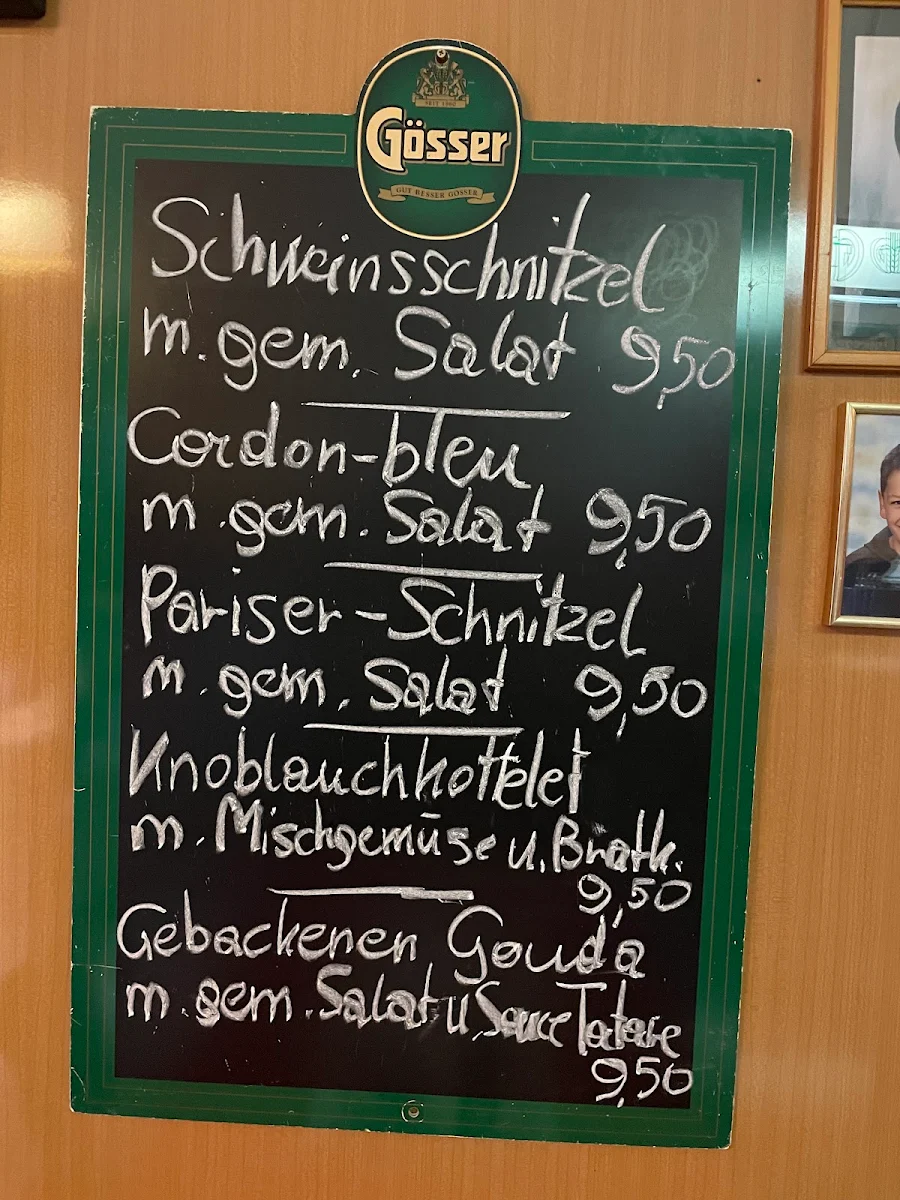 SEIT 1860
Gösser
GUT BESSER GÖSSER
Schweinsschnitzel
m. gem. Salat 9,50
Cordon-bleu
m. gem. Salat 9,50
Pariser-Schnitzel
m. gem. Salat 9,50
Knoblauchkottelet
m. Mischgemüse u. Bratk.
9,50
Gebackenen Gouda
m. gem. Salat u Sauce Tatare
9,50